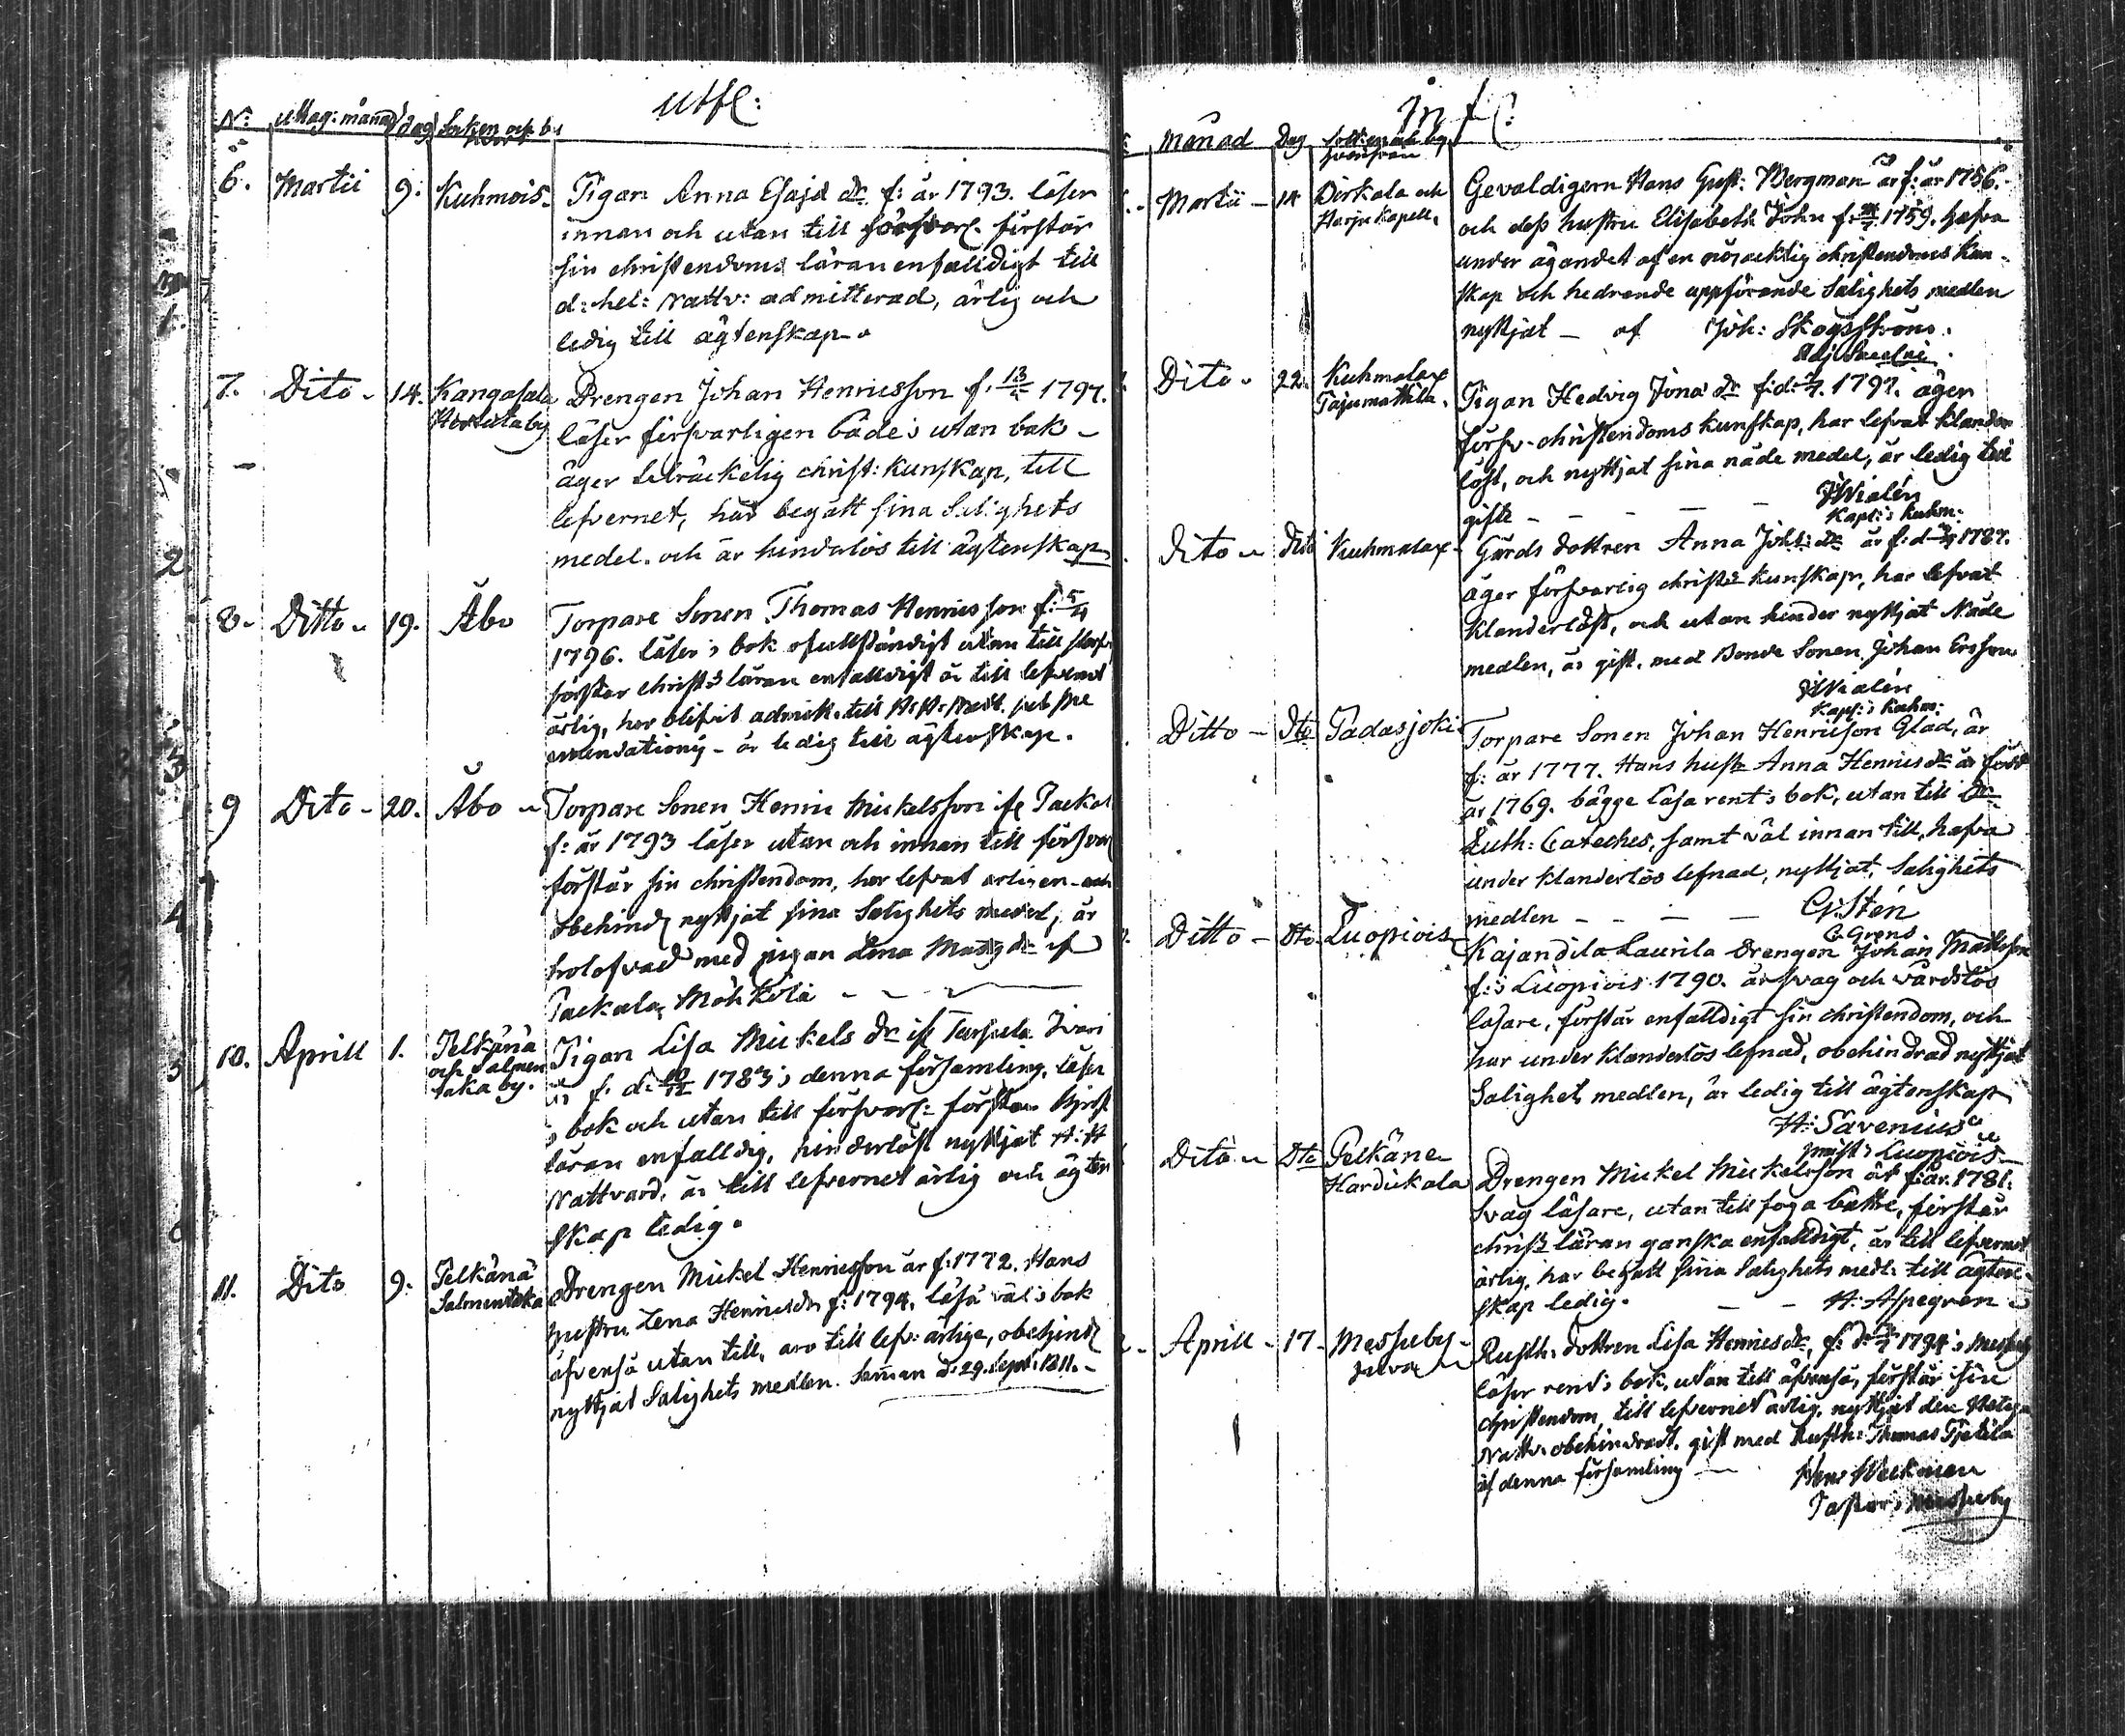 Utfl:
N: Uttag: månad dag Socken och by
6. Martii 9. Kuhmois. Pigan Anna Esajæ dr f: år 1793. läser
innan och utan till försvarl. förstår
sin christendoms läran enfalldigt till
d: hel: Nattv: admitterad, ärlig och
ledig till ägtenskap.
7. Dito 14. Kangasala Drengen Johan Henricsson f. 13/2 1797.
läser försvarligen både i utan bok
äger tilräckelig christ: kunskap, till
lefvernet, har begått sina Salighets
medel. och är hinderlös till ägtenskap
8. Ditto 19. Åbo Torpare Sonen Thomas Henricsson f: 5/4
1796. läser i bok ofullständigt utan till
förstår christ: läran enfalldigt är till lefvernet
ärlig, har blifvit admitt. till
är ledig till ägtenskap.
9 Dito 20. Åbo Torpare Sonen Henric Mickelsson
f: år 1793 läser utan och innan till försvar
förstår sin christendom, har lefvat ärligen och
obehind. nyttjat sina Salighets medel, är
trolofvad med pigan Lena Matts dr
10. Aprill 1. Pelkänä Pigan Lisa Mickels dr
och Salmen f. d. 10/12 1783 i denna församling, läser
taka by. i bok och utan till försvarl: förstår
läran enfalldig, hinderlöst nyttjat H: H
Nattvard, är till lefvernet ärlig och ägten
skap ledig.
11. Dito 9. Pelkänä Drengen Mickel Henricsson är f: 1772. Hans
Salmentaka hustru Lena Henrics dr f: 1794. läsa väl i bok
äfvenså utan till, äro till lef: ärlige, obehind
nyttjat Salighets medlen. d. 29. Sept: 1811.
Infl:
Månad Dag Socken och by
hvarifrån
Martii 14 Birkala och Gevaldigern Hans Gust: Bergman är f: år 1756.
Harju kapell. och dess hustru Elisabeth John f: 1759. hafva
under ägandet af en nöjacktig christendoms kun-
skap och hedrande uppförande Salighets medlen
nyttjat af Joh: Skogsström.
Dito 22. Kuhmalax Pigan Hedvig Jona dr äger
försv. christendoms kunskap, har lefvat klander
löst, och nyttjat sina nåde medel, är ledig till
gifte
Kapl: i Kuhm:
Dito Dito Kuhmalax Gårds dottren Anna Joh: dr är f: d. 1787.
äger försvarlig christ: kunskap, har lefvat
klanderlöst, och utan hinder nyttjat Nåde
medlen, är gift. med Bonde Sonen Johan Ersson
Kapl: i Kuhm:
Ditto Dto Padasjoki Torpare Sonen Johan Henricson Glad, är
f: år 1777. Hans hustr Anna Henrics dr är född
år 1769. bägge läsa rent i bok, utan till Dr
Luth: Cateches, samt väl innan till, hafva
under klanderlös lefnad, nyttjat, Salighets
medlen G: Stén
Ditto Dto Luopiois Kajandila Laurila Drengen Johan Mattsson
f: i Luopiois 1790. är svag och vårdslös
läsare, förstår enfalldigt sin christendom, och
har under klanderlös lefnad, obehindrad nyttjat
Salighets medlen, är ledig till ägtenskap
H: Savenius
Luopiois
Dito Dto Pelkäne Drengen Mickel Mickelsson är f: år 1781.
svag läsare, utan till foga bättre, förstår
christ: läran ganska enfalldigt, är till lefvernet
ärlig, har begått sina Salighets medl: till ägten-
skap ledig. H: Aspegren
Aprill 17 Messuby Rusth. dottren Lisa Henrics dr, f: d. 1794 i Messuby
läser rent i bok, utan till äfvenså, förstår sin
christendom, till lefvernet ärlig, nyttjat den Heliga
Nattv: obehindradt, gift med Rusth: Thomas
af denna församling Henr Weckman
Pastor i Messuby